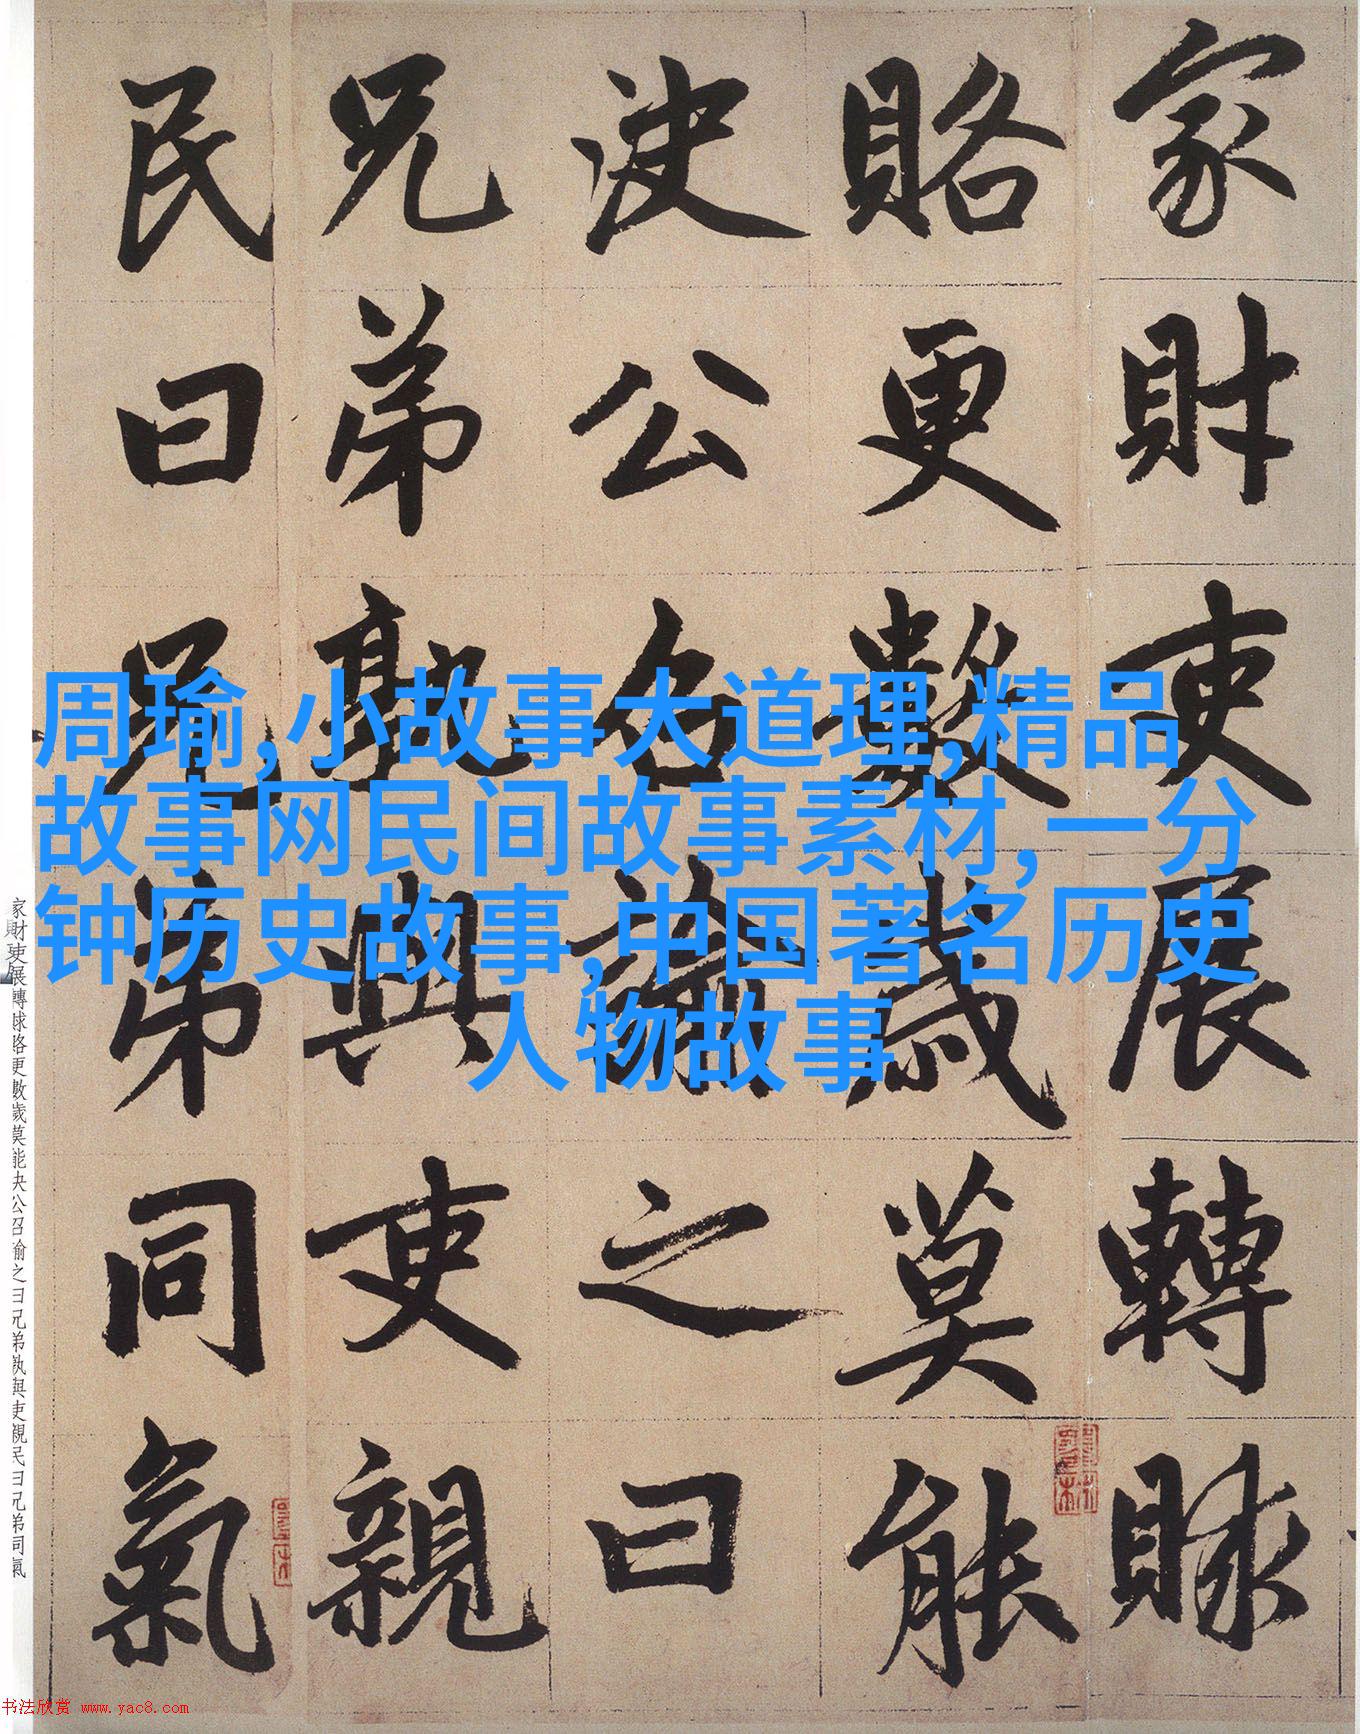 家財吏展轉賕
賂更數歲莫能
決公召諭之曰
兄弟孰與吏親
民曰兄弟同氣
周瑜,小故事大道理,精品
故事网民间故事素材,一分
钟历史故事,中国著名历史
人物故事
家財吏展轉賕賂更數歲莫能決公召諭之曰兄弟孰與吏親民曰兄弟同氣
书法欣赏 www.yac8.com